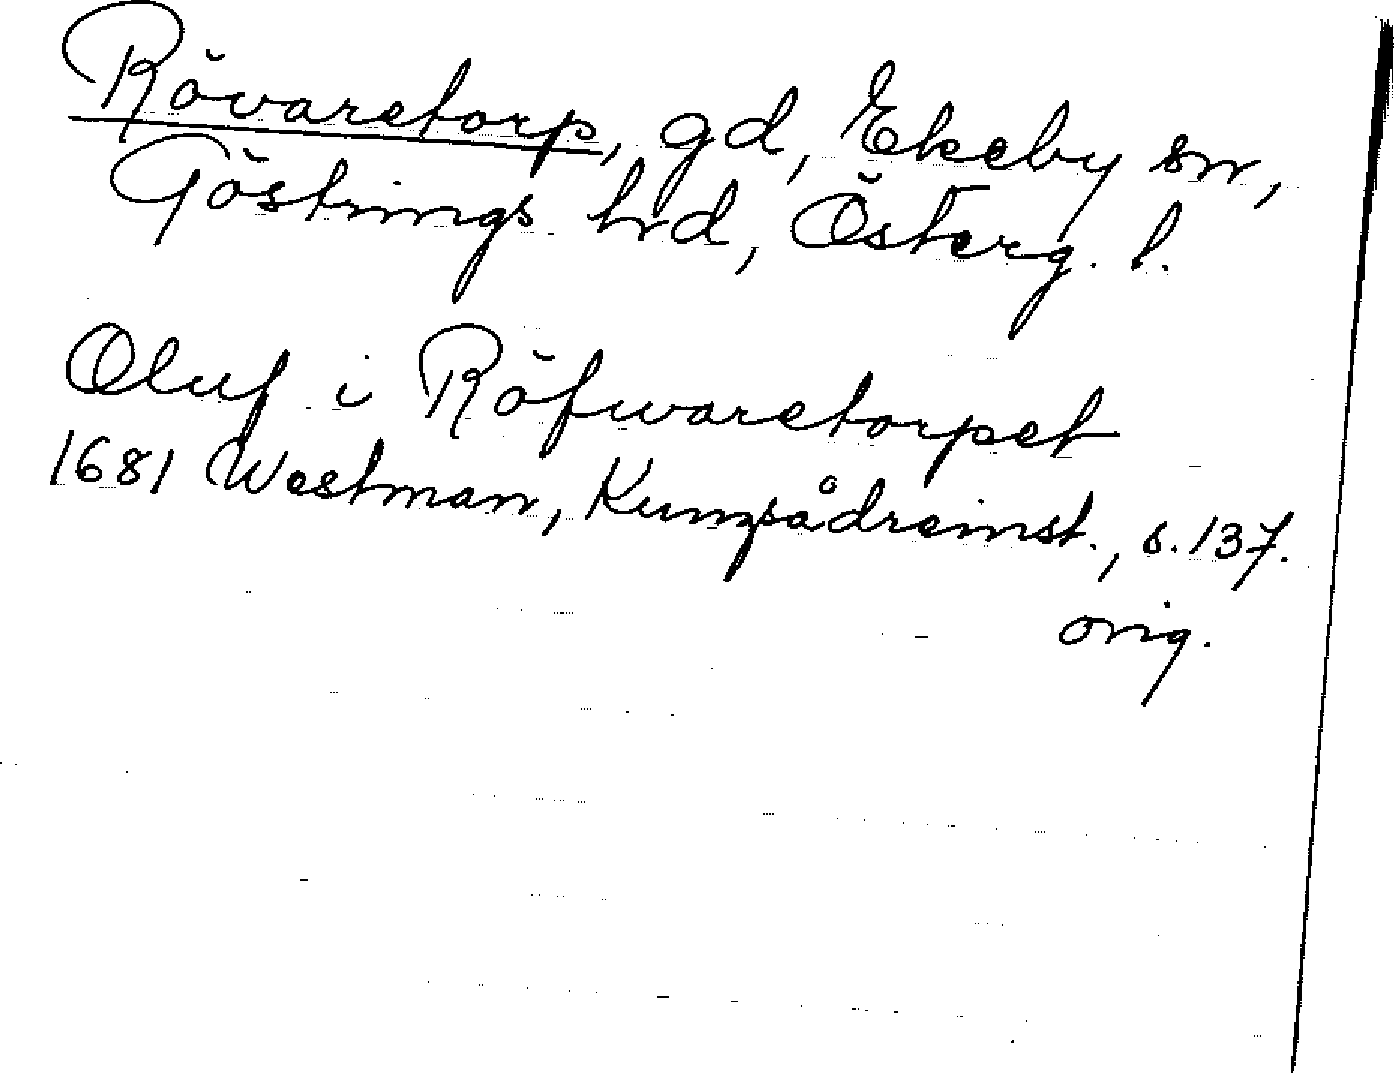 Rövaretorp, gd, Ekeby sn,
Göstrings hd, Österg. l.
Oluf i Röfwaretorpet
1681 Westman, Kungsådreinst., s. 137.
orig.